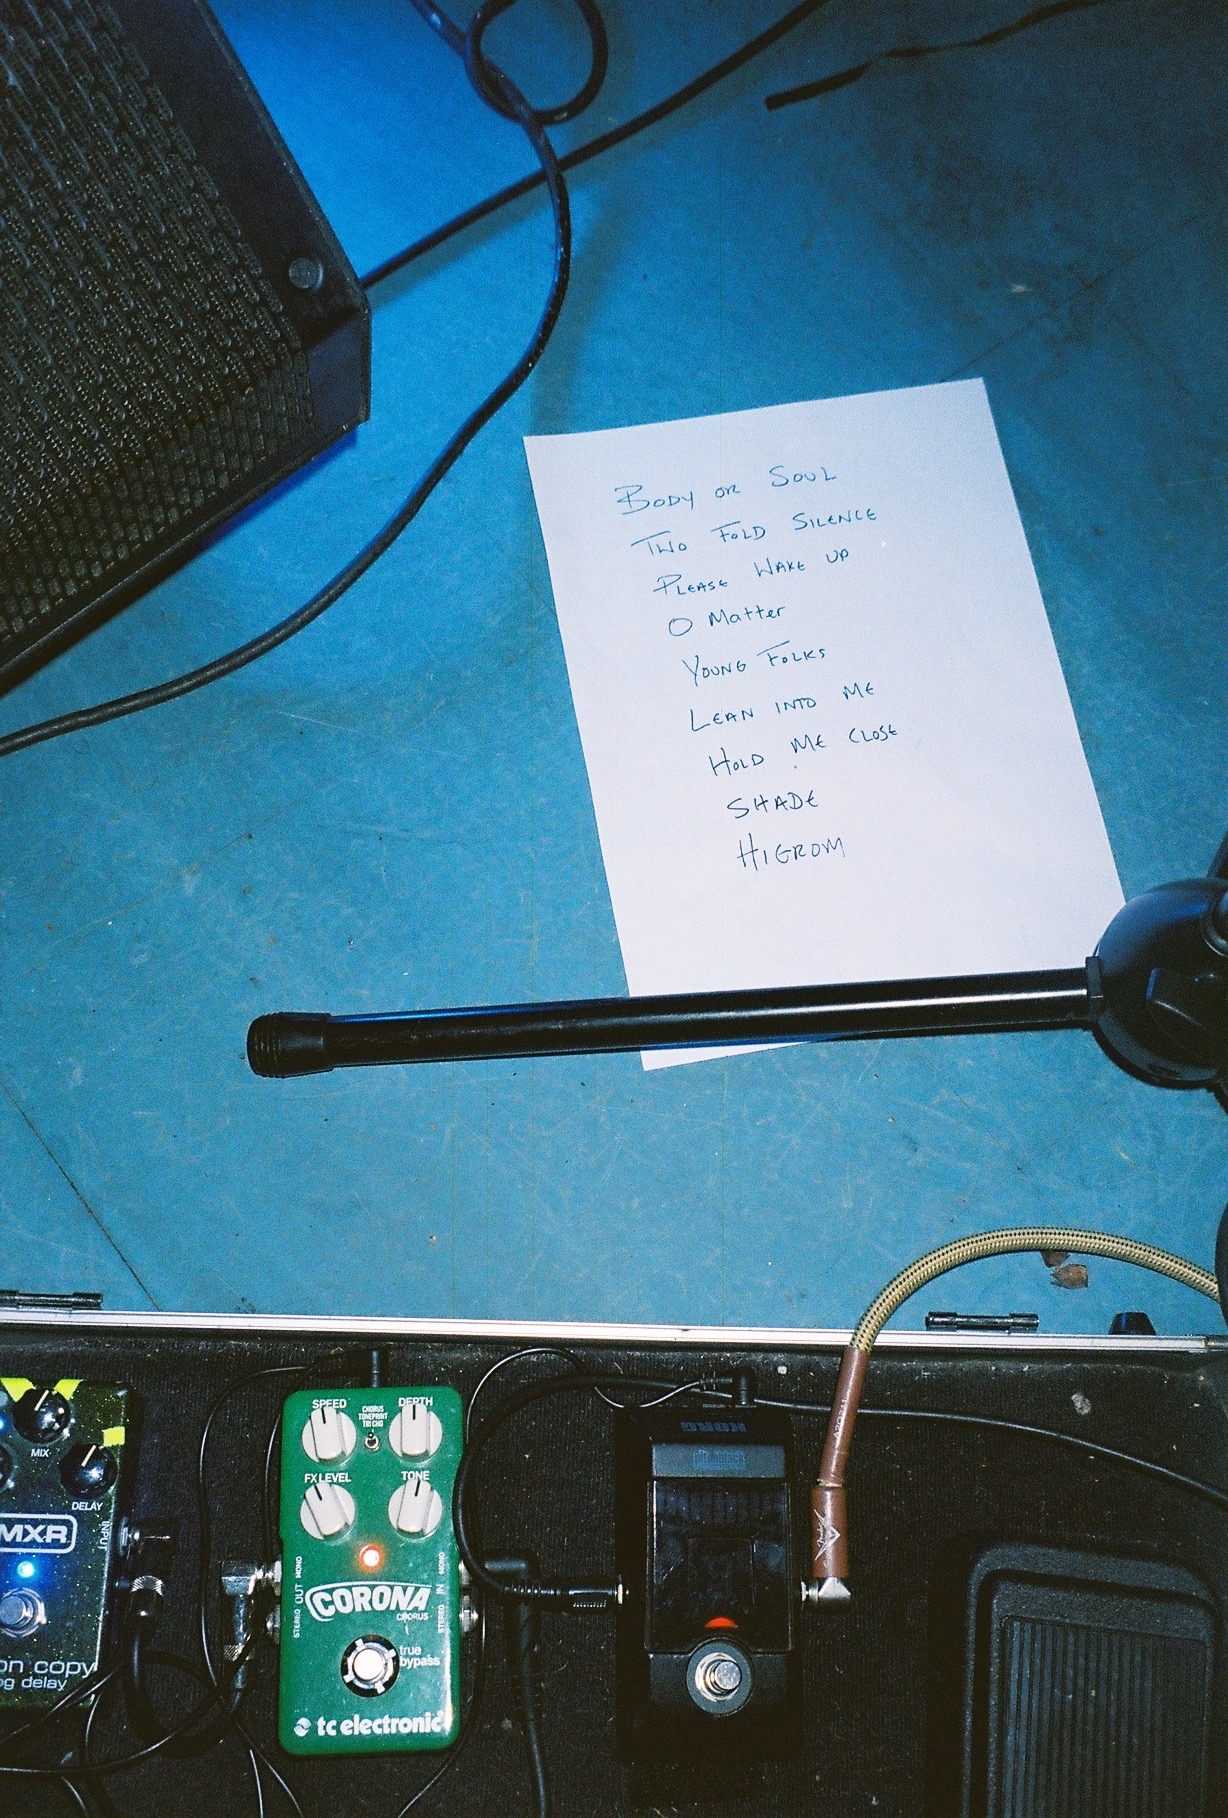 BODY OR SOUL
TWO FOLD SILENCE
PLEASE WAKE UP
O Matter
YOUNG FOLKS
LEAN INTO ME
HOLD ME CLOSE
SHADE
HIGROM
MIX
DELAY
INPUT
MXR
on copy
og delay
SPEED
DEPTH
CHORUS
TONEPRINT
TRI CHO
FX LEVEL
TONE
MONO
OUT
STEREO
MONO
IN
STEREO
CORONA
CHORUS
true
bypass
tc electronic
KORG
pitchblack